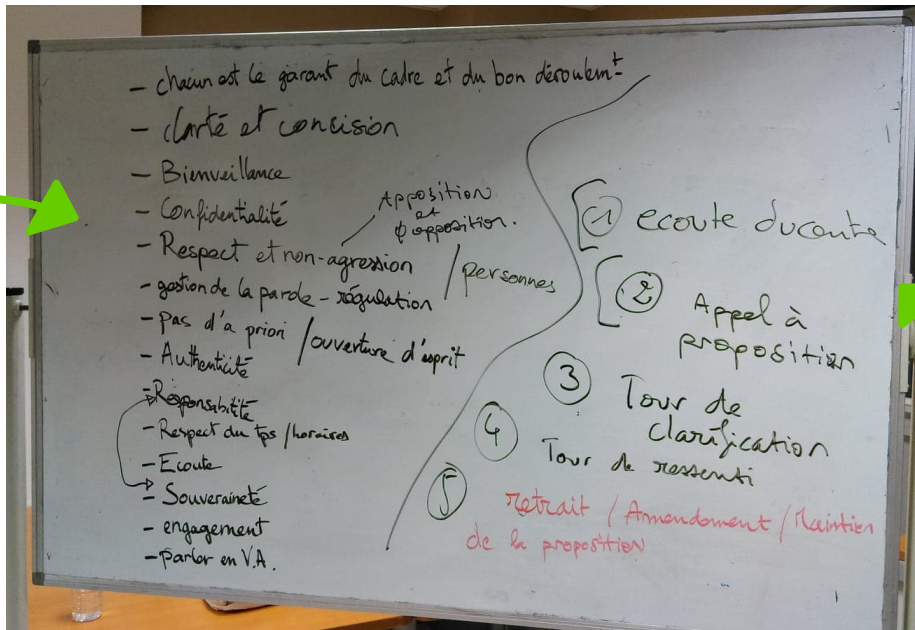 - chacun est le garant du cadre et du bon déroulemt
- clarté et concision
- Bienveillance
- Confidentialité
Apposition
et
opposition.
- Respect et non-agression
/ personnes
- gestion de la parole - régulation
- pas d'a priori / ouverture d'esprit
- Authenticité
- Responsabilité
- Respect du tps / horaires
- Ecoute
- Souveraineté
- engagement
- parler en V.A.
1 ecoute du centre
2 Appel à
proposition
3 Tour de
clarification
4 Tour de ressenti
5 retrait / Amendement / Maintien
de la proposition